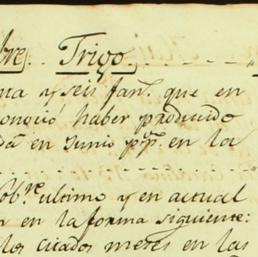 bre. Trigo
na y seis fan.s que en
onoció haber producido
da en Junio pp.º en los
ob.re ultimo y en actual
n en la forma siguiente:
los citados meses en las